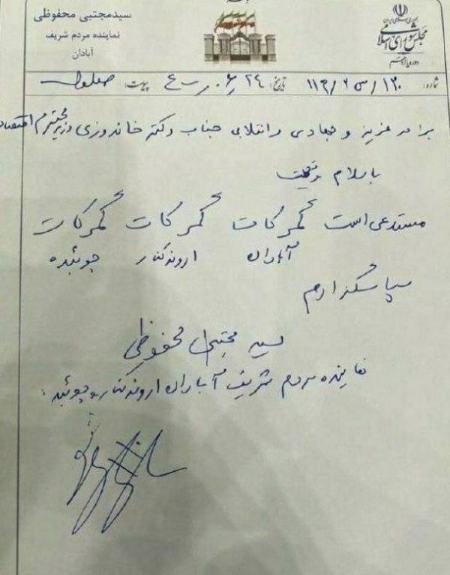 سیدمجتبی محفوظی
نماینده مردم شریف
آبادان
مجلس شورای اسلامی
شماره: ۱۳۰/س م/۱۱۲ تاریخ: پیوست:
برادر عزیز و جهادی و انقلابی جناب دکتر خاندوزی وزیر محترم اقتصاد
باسلام و تحیت
مستدعی است گمرکات گمرکات گمرکات
آبادان اروندکنار چوئبده
سپاسگزارم
سید مجتبی محفوظی
نماینده مردم شریف آبادان اروندکنار و چوئبده